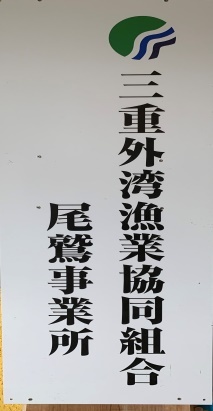 三重外湾漁業協同組合
尾鷲事業所